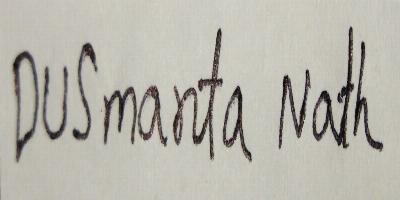 DUSmanta Nath